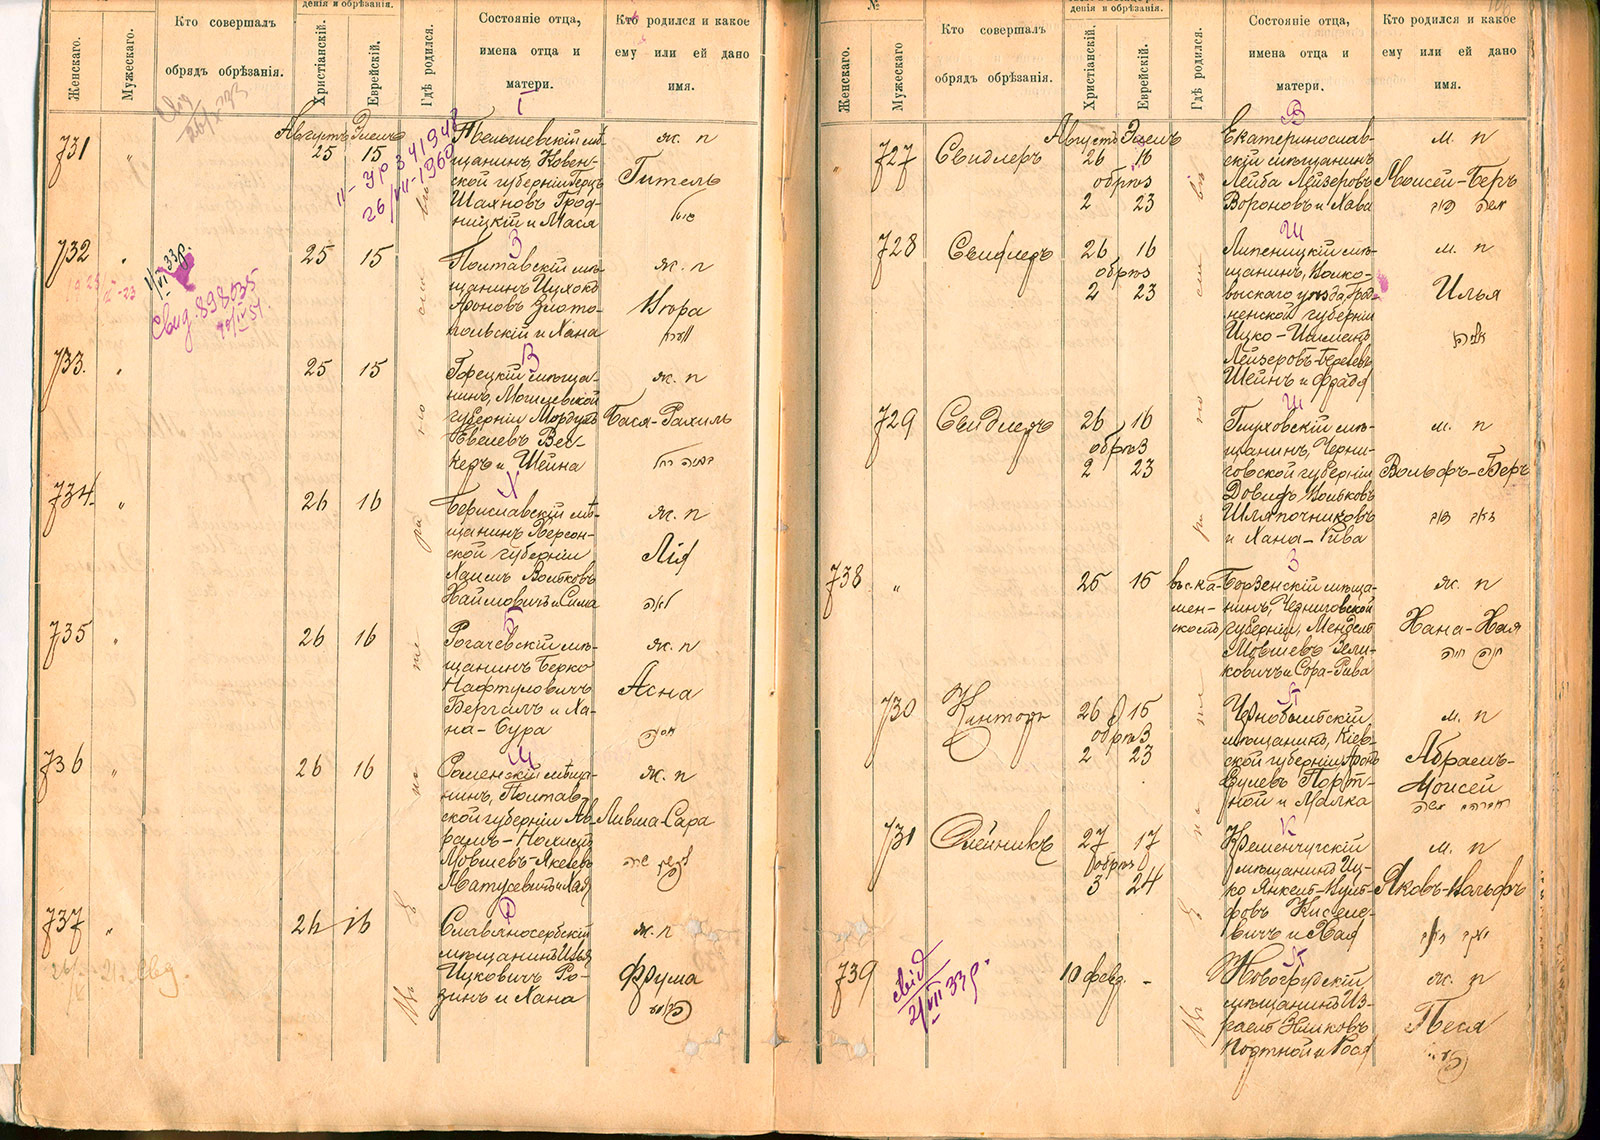 Женскаго.
Мужескаго.
Кто совершалъ
обрядъ обрѣзанія.
денія и обрѣзанія.
Христіанскій.
Еврейскій.
Гдѣ родился.
Состояніе отца,
имена отца и
матери.
Кто родился и какое
ему или ей дано
имя.
731
"
Августъ Элелъ
25 15
Г
Тельшевскій мѣ-
щанинъ Ковен-
ской губерніи Герцъ
Шахновъ Грод-
ницкій и Мася
ж. п
Гитель
26/VII-1960
732
"
25 15
З
Полтавскій мѣ-
щанинъ Ицхокъ
Ароновъ Злото-
польскій и Хана
ж. п
Свид. 898035
733.
"
25 15
В
Горецкій мѣща-
нинъ, Могилевской
губерніи Мордухъ
Евелевъ Вес-
керъ и Шейна
ж. п
Бася-Рахиль
באסיה רחל
734.
"
26 16
Х
Бериславскій мѣ-
щанинъ Херсон-
ской губерніи
Хаимъ Волковъ
Хаимовичъ и Сима
ж. п
Лія
לאה
735
"
26 16
Б
Рогачевскій мѣ-
щанинъ Берко
Нафтуловичъ
Бергалъ и Ха-
на-Сура
ж. п
Асна
736
"
26 16
Роменскій мѣща-
нинъ, Полтав-
ской губерніи Ав-
рамъ-Нохимъ
Мовшевъ-Якелевъ
Матусевичъ и Хая
ж. п
Ливша-Сара
737
"
26 16
Славяносербскій
мѣщанинъ Илья
Ицковичъ Ро-
зинъ и Хана
ж. п
Фрума
№
Женскаго.
Мужескаго
Кто совершалъ
обрядъ обрѣзанія.
денія и обрѣзанія.
Христіанскій.
Еврейскій.
Гдѣ родился.
Состояніе отца,
имена отца и
матери.
Кто родился и какое
ему или ей дано
имя.
"
727
Свидлеръ
Августъ Элелъ
26 16
обрѣз
2 23
В
Екатеринослав-
скій мѣщанинъ
Лейба Лейзеровъ
Вороновъ и Хава
м. п
Моисей-Беръ
משה בער
728
Свидлеръ
26 16
обрѣз
2 23
Ш
Липеницкій мѣ-
щанинъ, Волко-
выскаго уѣзда Грод-
ненской губерніи
Ицко-Шлиманъ
Лейзеровъ-Береловъ
Шейнъ и Фрадя
м. п
Илья
אליהו
729
Свидлеръ
26 16
обрѣз
2 23
Ш
Глуховскій мѣ-
щанинъ, Черни-
говской губерніи
Довидъ Волковъ
Шляпочниковъ
и Хана-Рива
м. п
Вольфъ-Беръ
וואלף בער
738
"
25 15
въ с. Ка-
мен-
скомъ
З
Борзенскій мѣща-
нинъ, Черниговской
губерніи, Мендель
Мовшевъ Зели-
ковичъ и Сора-Рива
ж. п
Хана-Хая
חנה חיה
730
Канторъ
26 15
обрѣз
2 23
П
Чернобыльскій
мѣщанинъ, Кіев-
ской губерніи Аронъ
Сулевъ Порт-
ной и Малка
м. п
Абрамъ-
Моисей
אברהם משה
731
Олейникъ
27 17
обрѣз
3 24
К
Кременчугскій
мѣщанинъ Иц-
ко Янкель-Вуль-
фовъ Киселе-
вичъ и Хая
м. п
Яковъ-Вольфъ
יעקב וואלף
739
свід
21/VII 33р.
10 февр. -
П
Новогрудскій
мѣщанинъ Из-
раель Зелковъ
Портной и Рося
ж. п
Песя